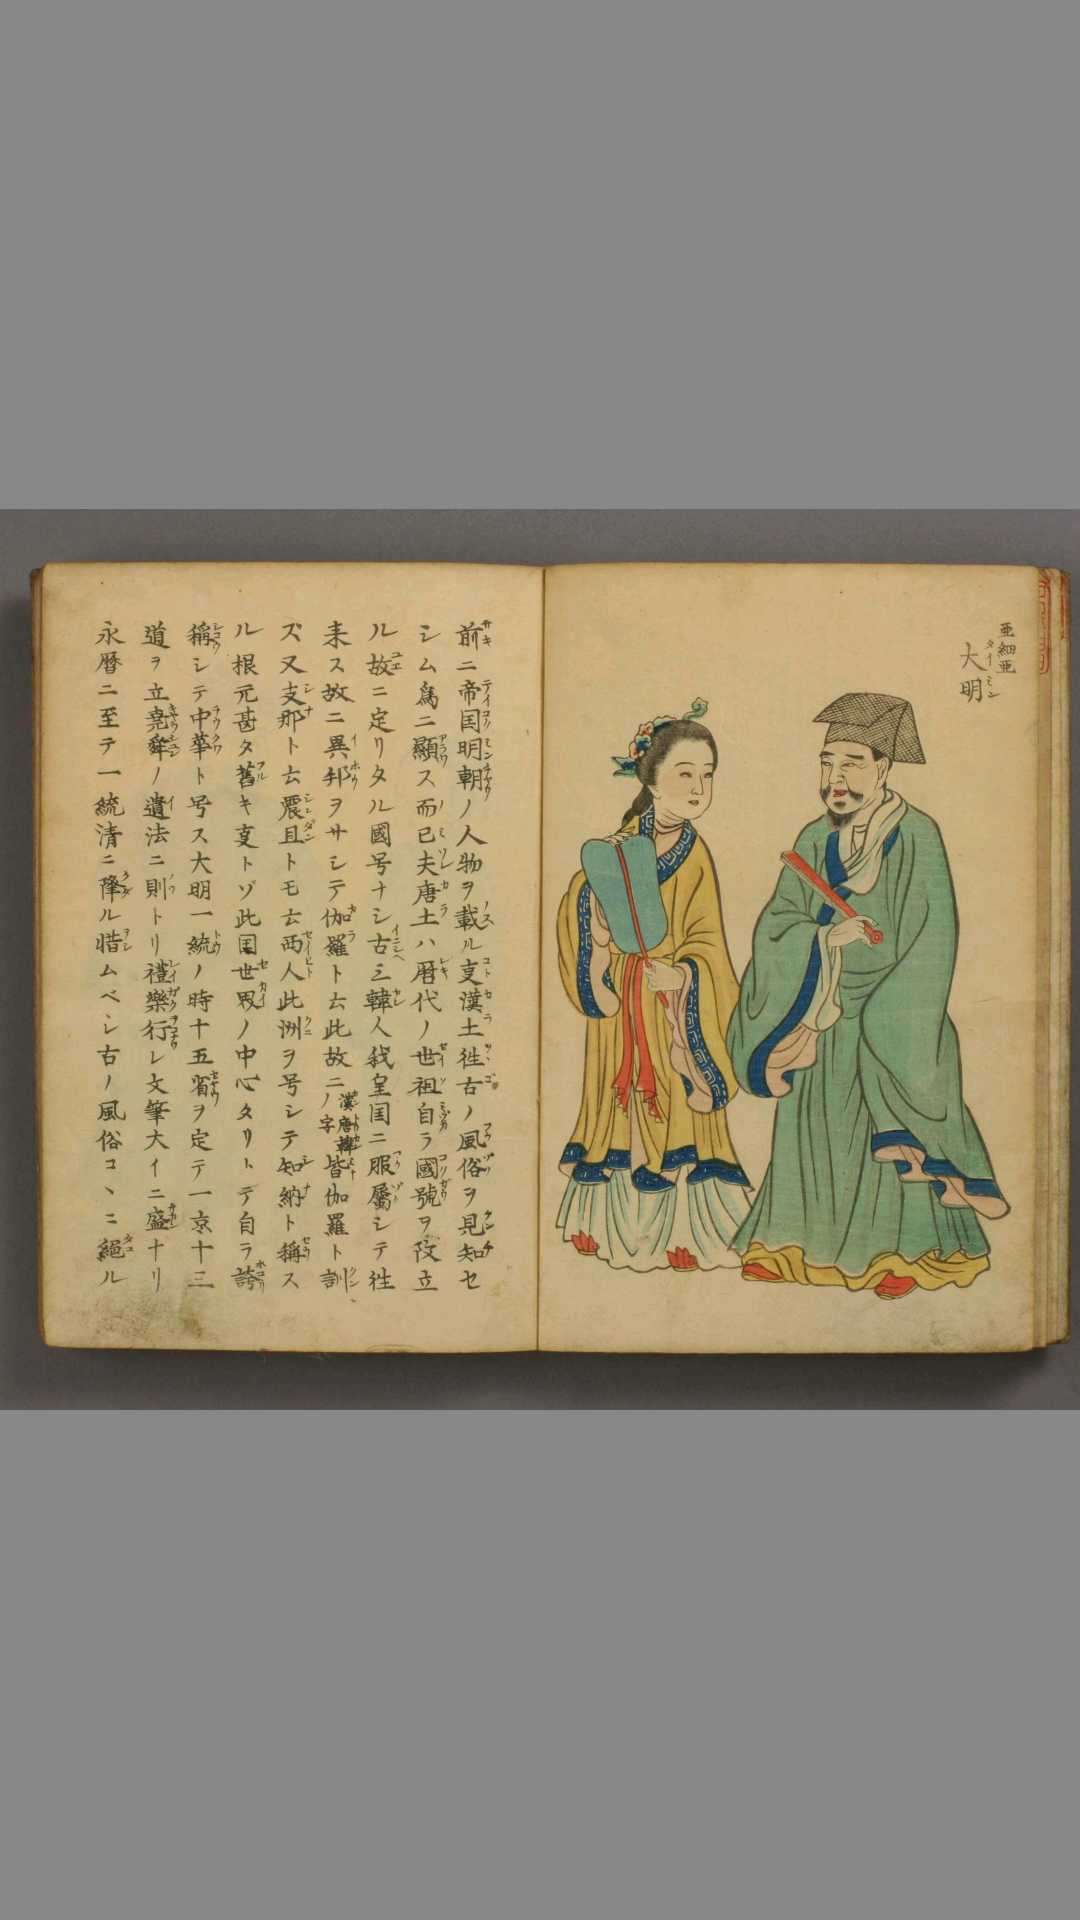 亜細亜
大明
タイミン
前ニ帝国明朝ノ人物ヲ載ル叓漢土徃古ノ風俗ヲ見知セ
シム為ニ顯ス而已夫唐土ハ暦代ノ世祖自ラ國號ヲ改立
ル故ニ定リタル國号ナシ古三韓人我皇国ニ服屬シテ徃
来ス故ニ異邦ヲサシテ伽羅ト云此故ニ漢唐韓ノ字皆伽羅ト訓
ズ又支那ト云震旦トモ云西人此洲ヲ号シテ知納ト稱ス
ル根元甚タ舊キ叓トゾ此国世界ノ中心タリトテ自ラ誇
稱シテ中華ト号ス大明一統ノ時十五省ヲ定テ一京十三
道ヲ立堯舜ノ遺法ニ則トリ禮樂行レ文筆大イニ盛ナリ
永暦ニ至テ一統清ニ降ル惜ムベシ古ノ風俗コヽニ絕ル